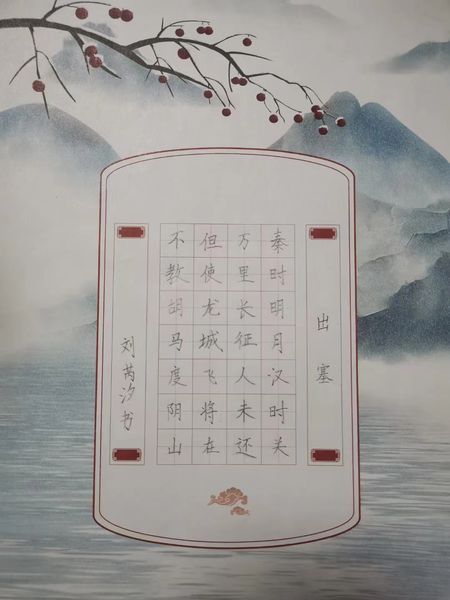 出塞
秦时明月汉时关
万里长征人未还
但使龙城飞将在
不教胡马度阴山
刘芮汐书